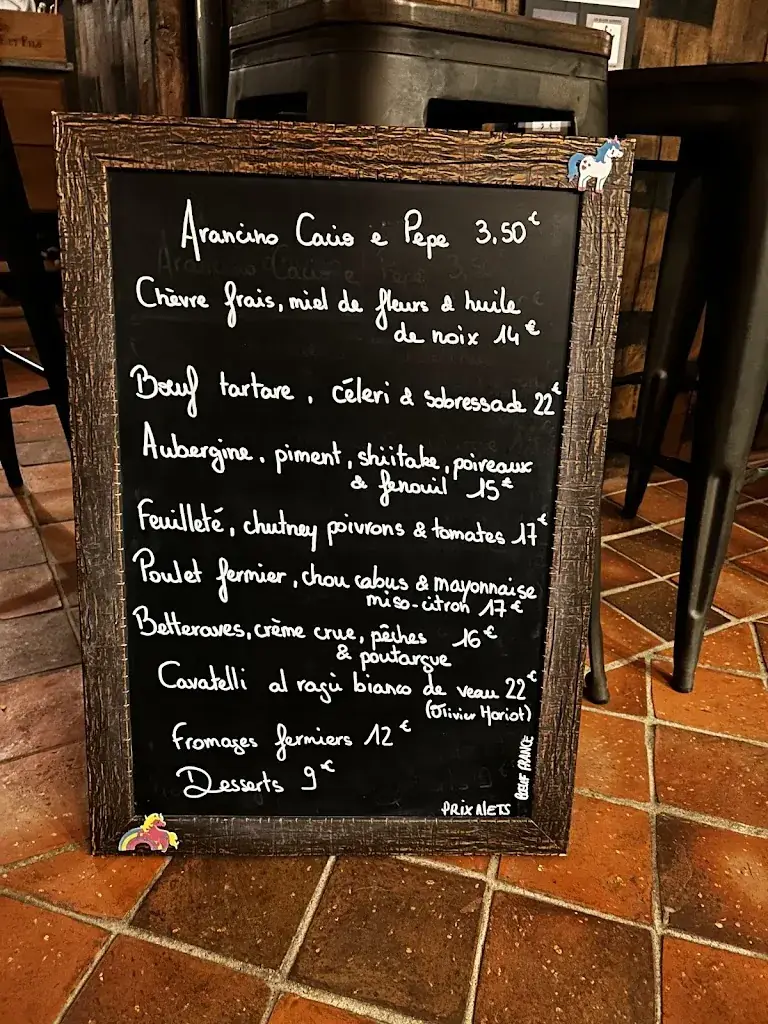 Arancino Cacio e Pepe 3.50€
Chèvre frais, miel de fleurs & huile
de noix 14€
Bœuf tartare, céleri & sobressade 22€
Aubergine, piment, shiitake, poireaux
& fenouil 15€
Feuilleté, chutney poivrons & tomates 17€
Poulet fermier, chou cabus & mayonnaise
miso-citron 17€
Betteraves, crème crue, pêches 16€
& poutargue
Cavatelli al ragù bianco de veau 22€
(Olivier Horiot)
Fromages fermiers 12€
Desserts 9€
PRIX NETS
BŒUF FRANCE